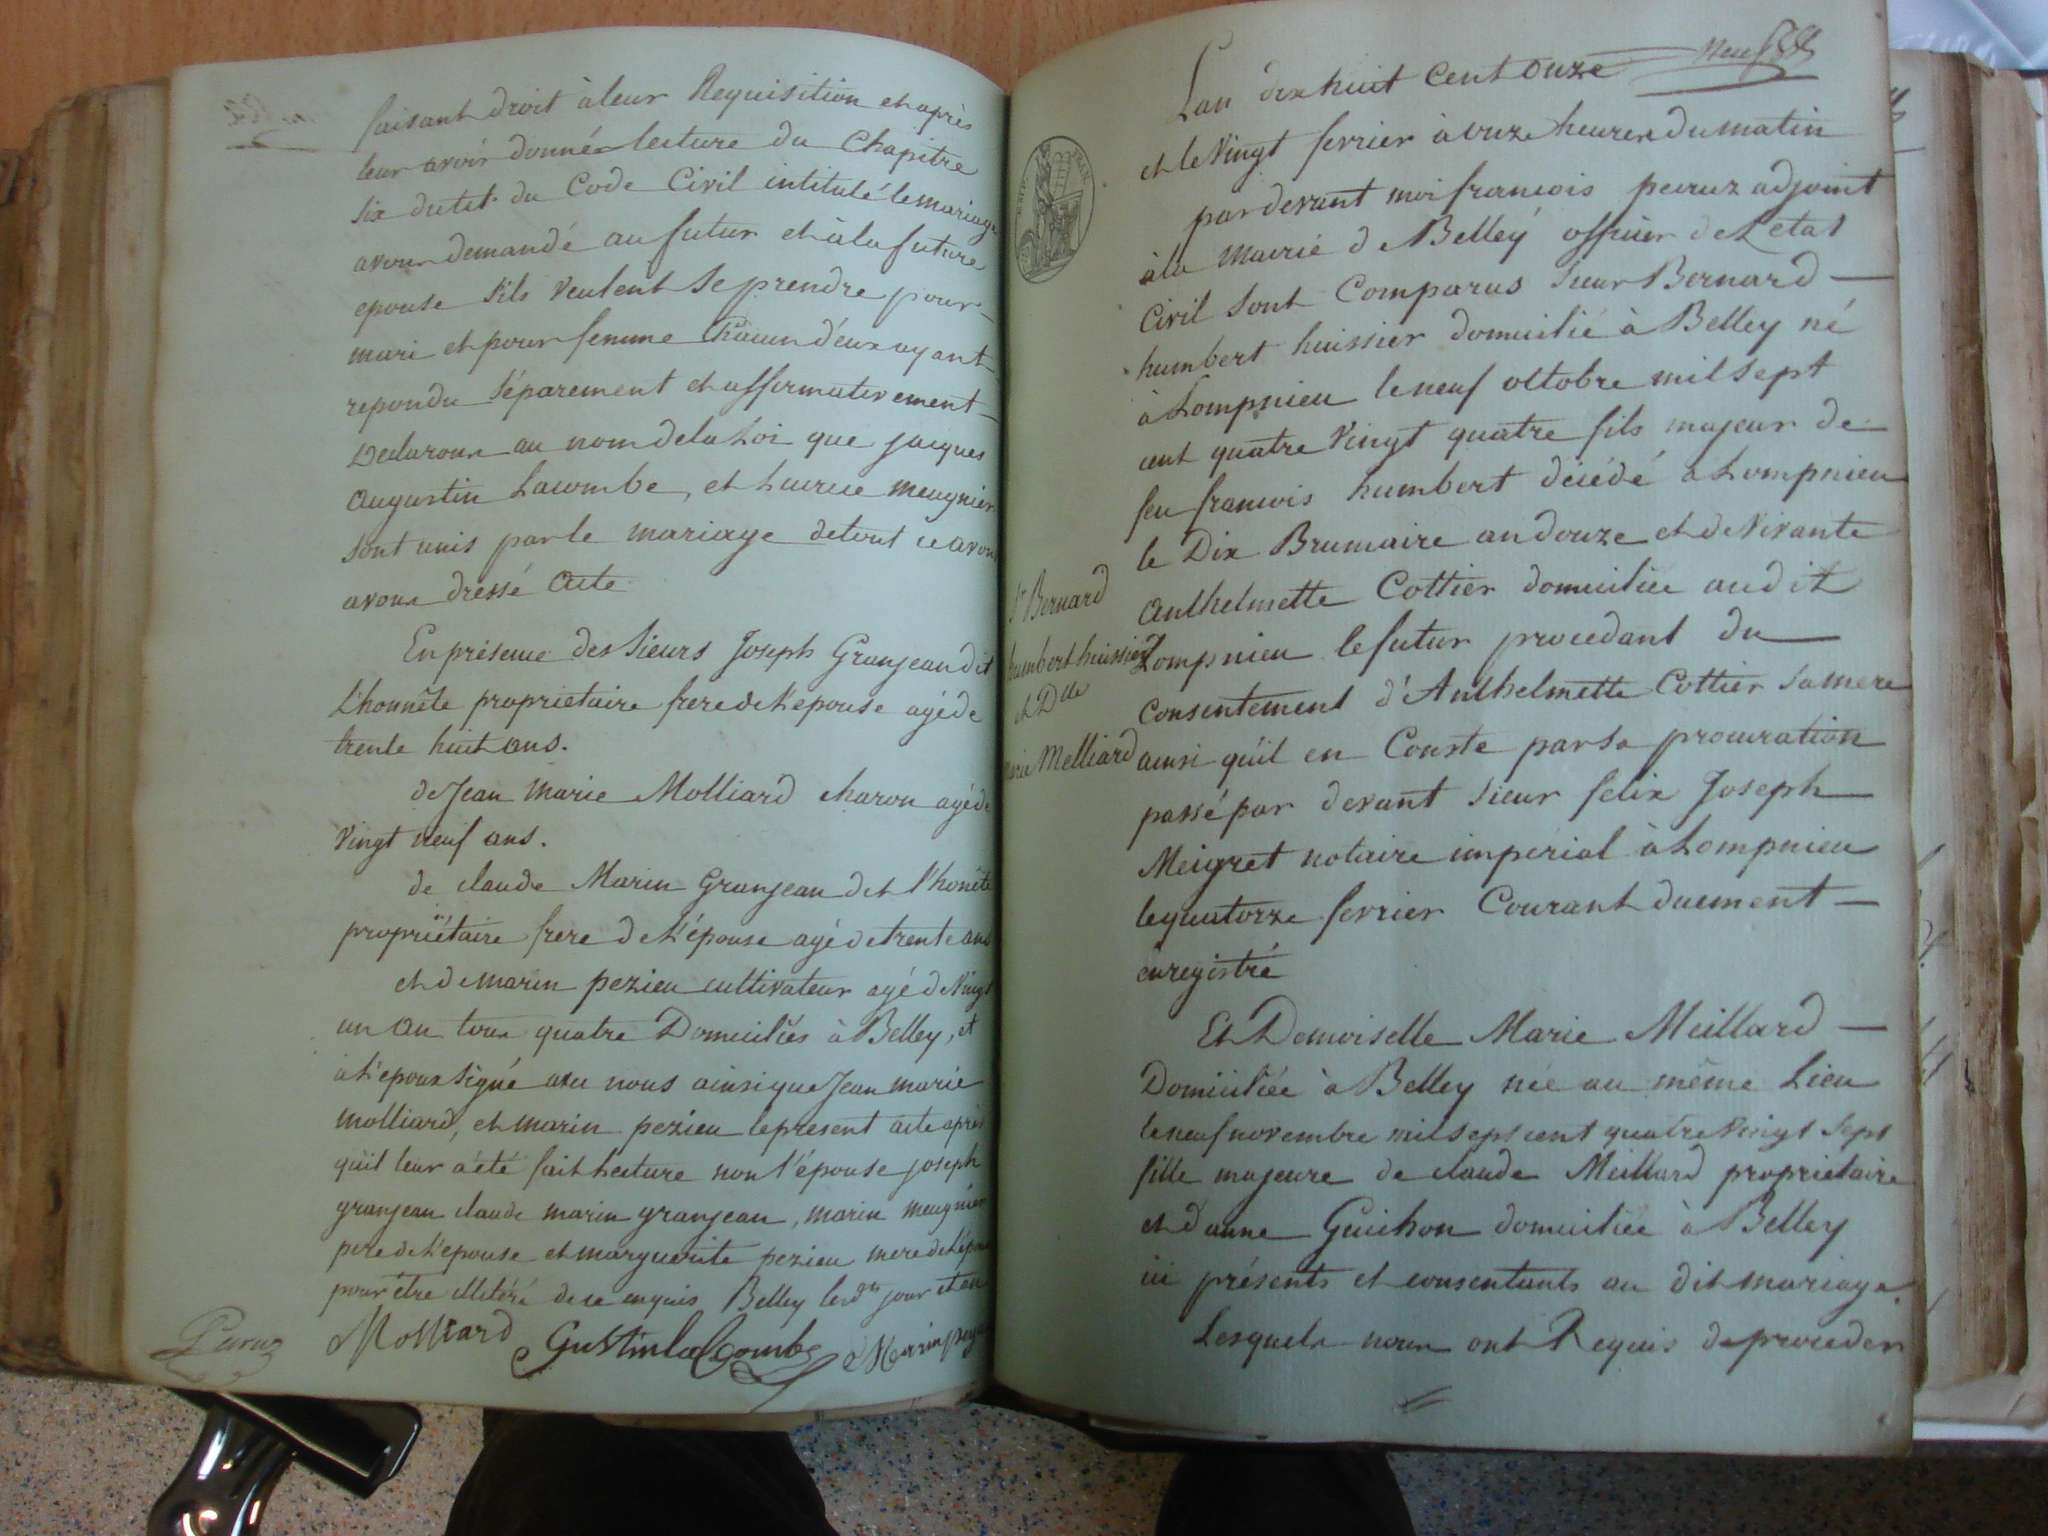 faisant droit à leur Requisition et après
leur avoir donné lecture du Chapitre
six du tit. du Code Civil intitulé le mariage
avons demandé au futur et à la future
epouse s'ils veulent se prendre pour
mari et pour femme Chacun d'eux ayant
repondu séparement et affirmativement
Declarons au nom de la Loi que jacques
augustin Lacombe, et Lucrece meugnier
sont unis par le mariage de tout ce avons
avons dressé acte
En présence des sieurs Joseph Granjean dit
L'honnête proprietaire frere de L'epouse agé de
trente huit ans.
de Jean Marie Molliard charon agé de
vingt neuf ans.
de claude Marin Granjean dit l'honête
propriétaire frere de L'épouse agé de trente ans
et de marin pezieu cultivateur agé de vingt
un an tous quatre Domiciliés à Belley, et
à L'epoux signé avec nous ainsi que Jean marie
molliard, et marin pezieu le present acte après
qu'il leur a été fait Lecture non l'épouse joseph
granjean claude marin granjean, marin meugnier
pere de L'epouse et marguerite pezieu mere de L'épouse
pour être illitéré de ce enquis Belley les dts jour et an
Molliard Gustin la Combe Marin pezieu
Peruz
Neuf
L'an dix huit Cent Onze
et le vingt fevrier à onze heures du matin
par devant moi francois peruz adjoint
à la Mairie de Belley officier de L'etat
Civil sont Comparus sieur Bernard
humbert huissier domicilié à Belley né
à Lompnieu le neuf octobre mil sept
cent quatre vingt quatre fils majeur de
feu francois humbert décédé à Lompnieu
le Dix Brumaire an douze et de vivante
Anthelmette Cottier domiciliée au dit
Lompnieu le futur procedant du
Consentement d'Anthelmette Cottier sa mere
ainsi qu'il en Conste par sa procuration
passé par devant sieur felix Joseph
Meigret notaire impérial à Lompnieu
le quatorze fevrier Courant duement
enregistré
Sr Bernard
humbert huissier
et Dlle
Marie Melliard
Et Demoiselle Marie Meillard
Domiciliée à Belley née au même Lieu
le neuf novembre mil sept cent quatre vingt sept
fille majeure de claude Meillard proprietaire
et d'anne Guichon domiciliée à Belley
ici présents et consentants au dit mariage.
Lesquels nous ont Requis de proceder